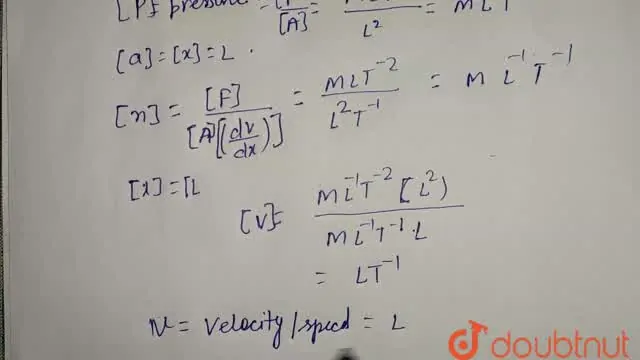 [P] pressure = [F]/[A] = /L² = M L T
[a] = [x] = L .
[η] = [F]/[A][(dv/dx)] = MLT⁻²/L²T⁻¹ = M L⁻¹ T⁻¹
[l] = [L
[V] = ML⁻¹T⁻² [L²)/ML⁻¹T⁻¹.L
= LT⁻¹
N = Velocity/speed = L
doubtnut